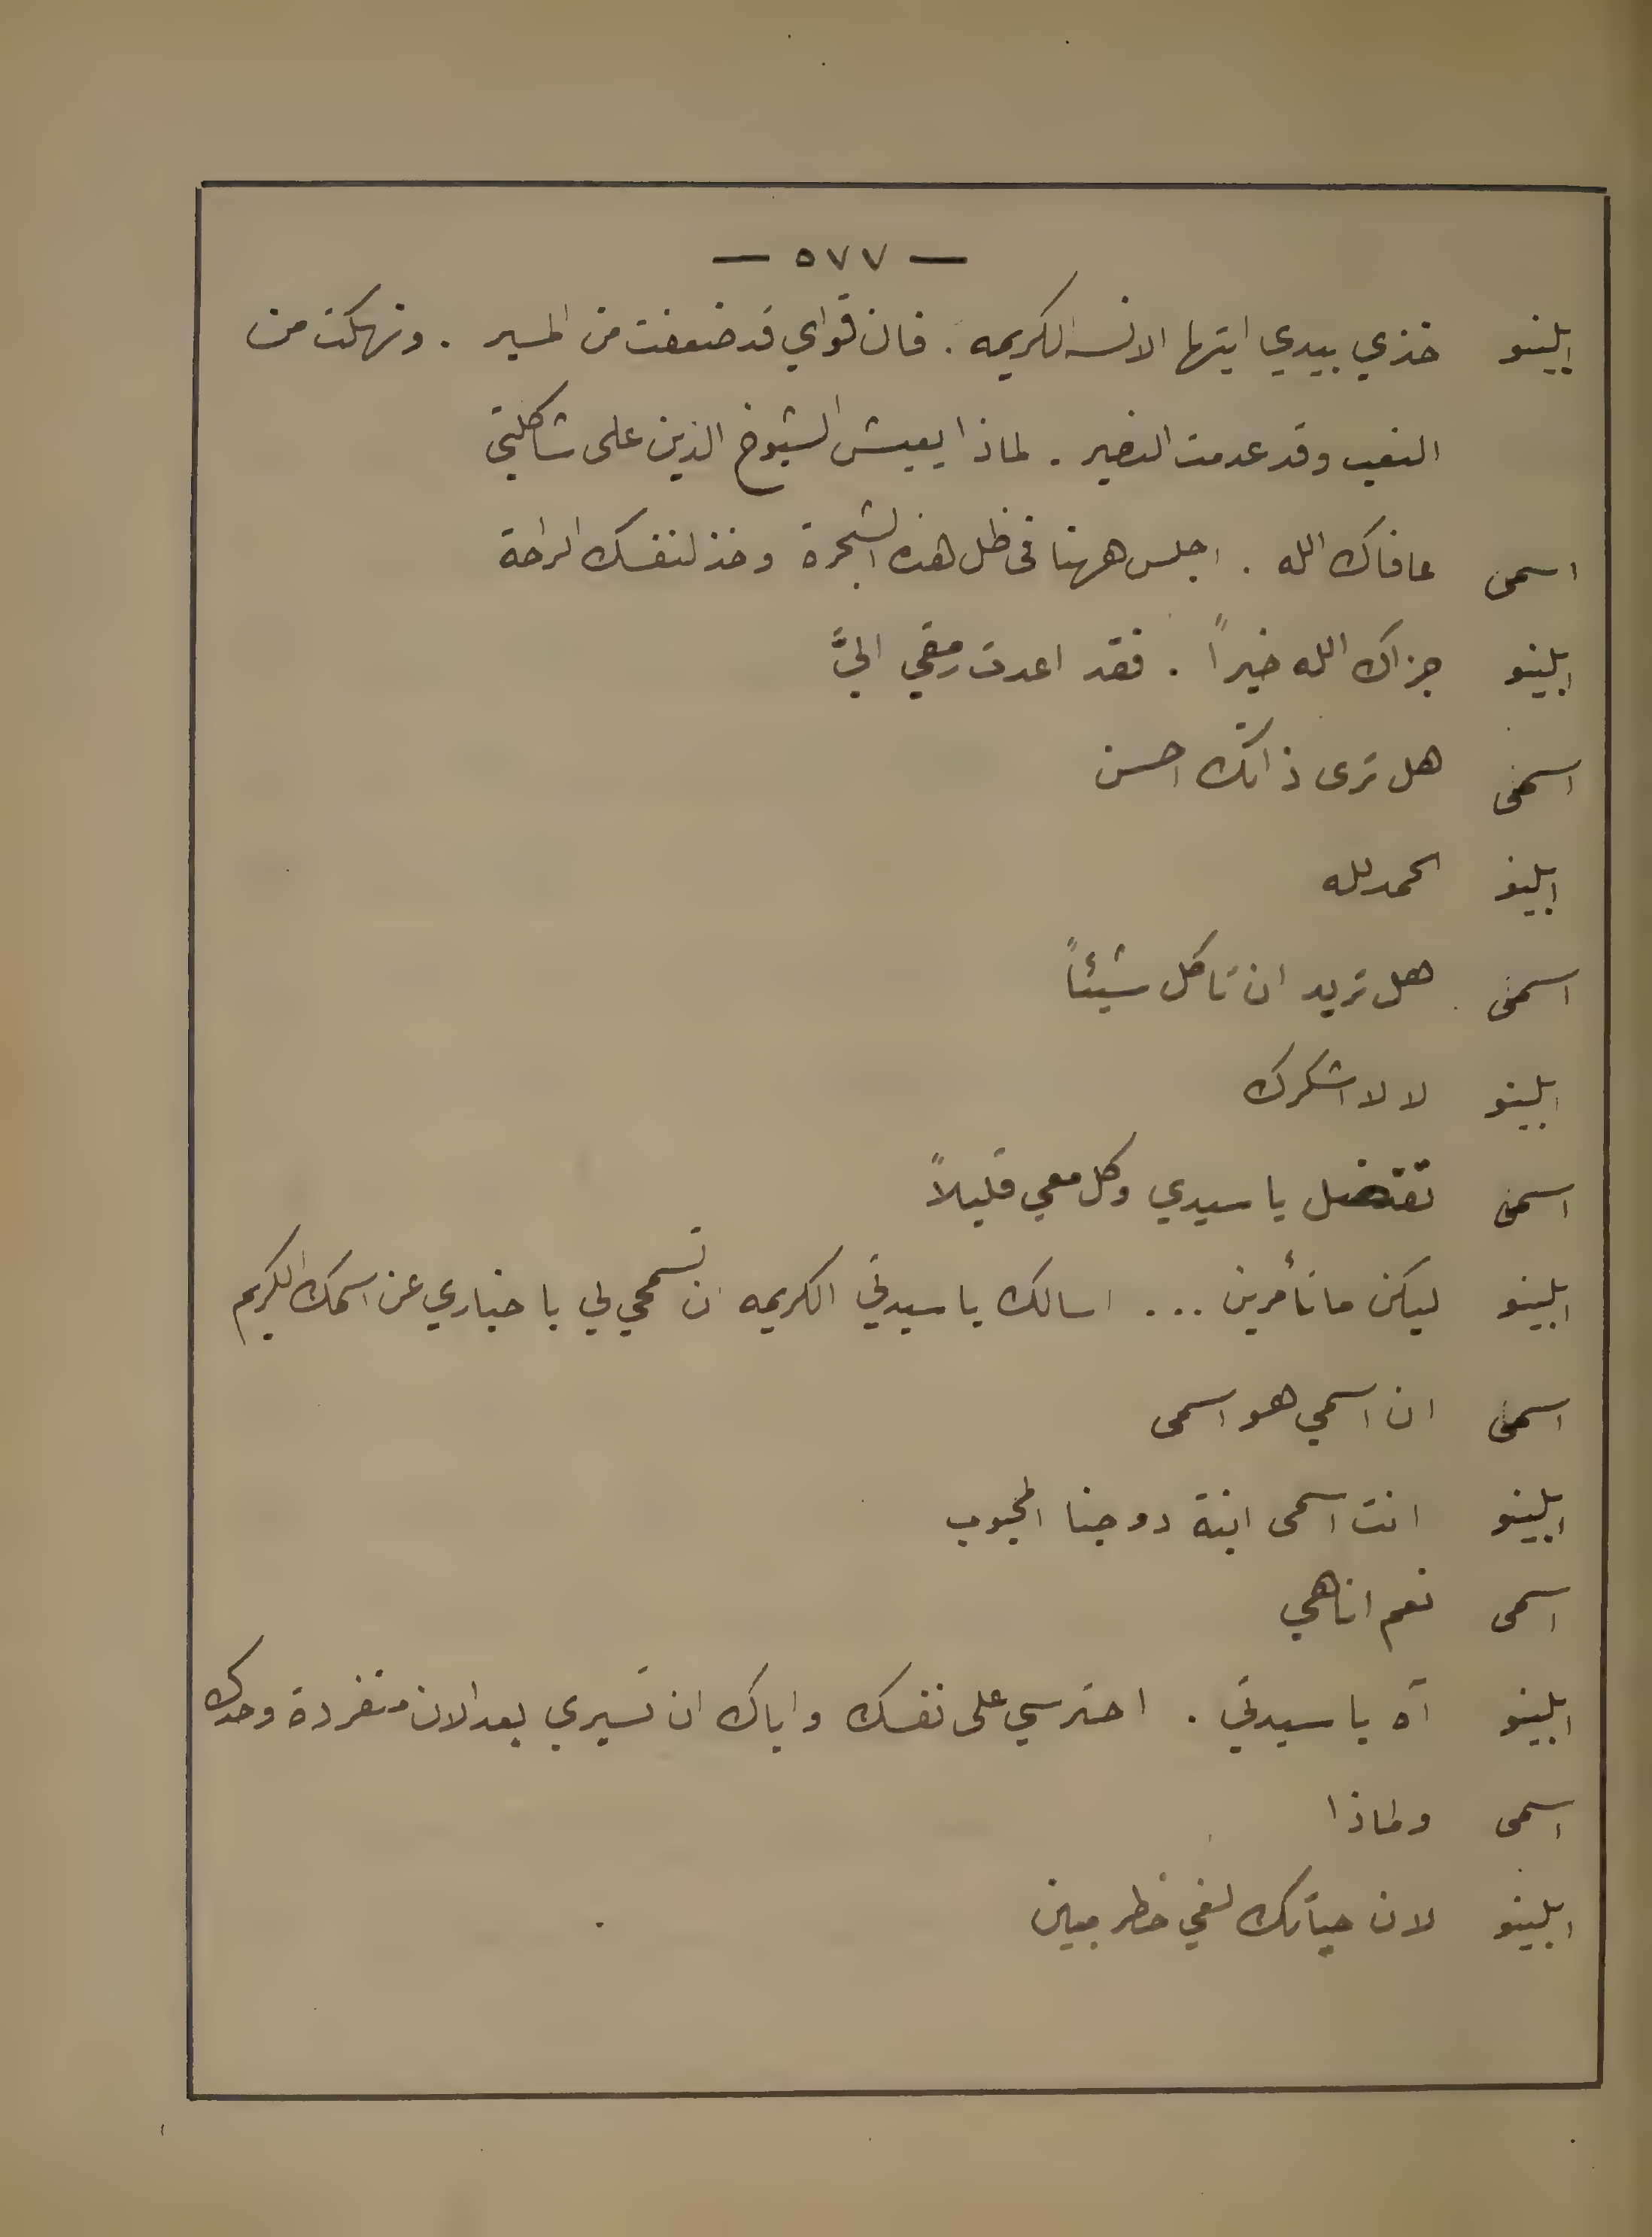 — ٥٧٧ —
ابلينو خذي بيدي ايتها الانسه الكريمه . فان قواي قد ضعفت من المسير . ونهكت من
التعب وقد عدمت النصير . لماذا يعيش الشيوخ الذين على شاكلتي
اسمى عافاك الله . اجلس ههنا في ظل هذه الشجرة وخذ لنفسك الراحة
ابلينو جزاك الله خيراً . فقد اعدت رمقي اليَّ
اسمى هل ترى ذاتك احسن
ابلينو الحمد لله
اسمى هل تريد ان تاكل شيئاً
ابلينو لا لا اشكرك
اسمى تفضل يا سيدي وكل معي قليلاً
ابلينو ليكن ما تأمرين ... اسالك يا سيدتي الكريمه ان تسمحي لي باخباري عن اسمك الكريم
اسمى ان اسمي هو اسمى
ابلينو انت اسمى ابنة دوجنا المحبوب
اسمى نعم انا هي
ابلينو آه يا سيدتي . احترسي على نفسك واياك ان تسيري بعد الان منفردة وحدك
اسمى ولماذا
ابلينو لان حياتك لفي خطر مبين